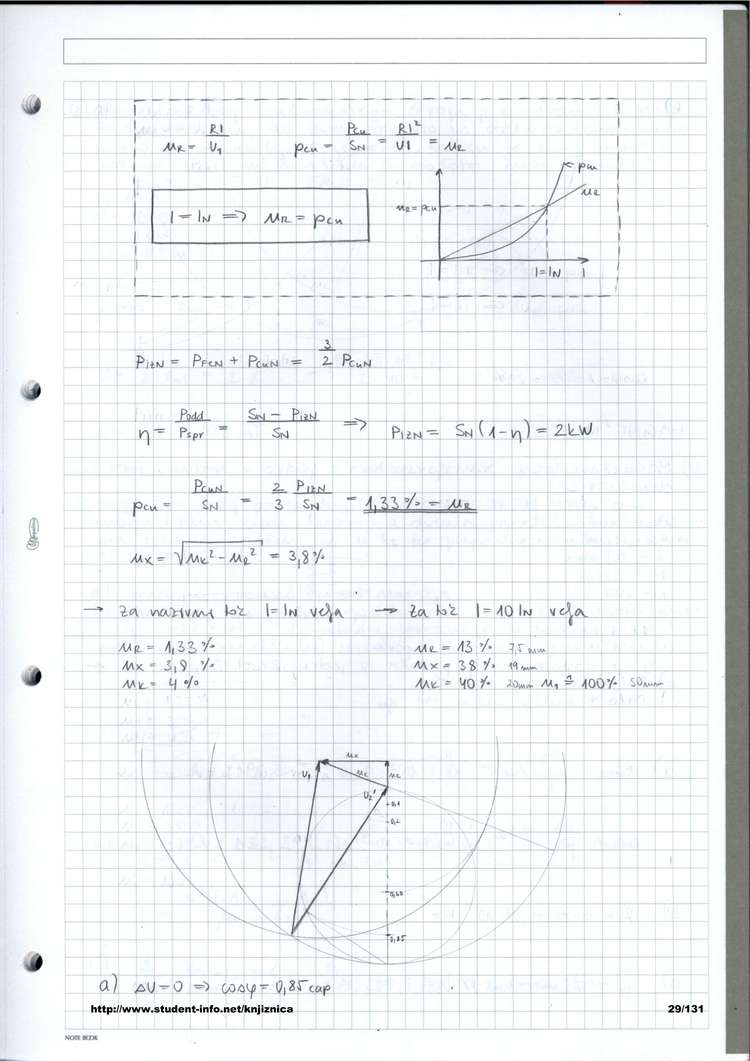 u_R = RI / U_1    p_cu = P_cu / S_N = RI² / UI = u_R
I = I_N => u_R = p_cu
p_cu
u_R
u_R = p_cu
I = I_N    I
P_izN = P_FeN + P_CuN = 3/2 P_CuN
η = P_odd / P_spr = (S_N - P_izN) / S_N => P_izN = S_N (1-η) = 2kW
p_cu = P_CuN / S_N = 2/3 P_izN / S_N = 1,33% = u_R
u_X = √(u_K² - u_R²) = 3,8%
→ Za nazivni tok I = I_N velja → Za tok I = 10 I_N velja
u_R = 1,33 %    u_R = 13 % 7,5 mm
u_X = 3,8 %    u_X = 38 % 19 mm
u_K = 4 %    u_K = 40 % 20mm U_1 ≙ 100% 50mm
u_X
U_1    u_K    u_R
U_2'
0,1
0,2
0,60
0,85
a) ΔU = 0 => cosφ = 0,85 cap
http://www.student-info.net/knjiznica    29/131
NOTE BOOK